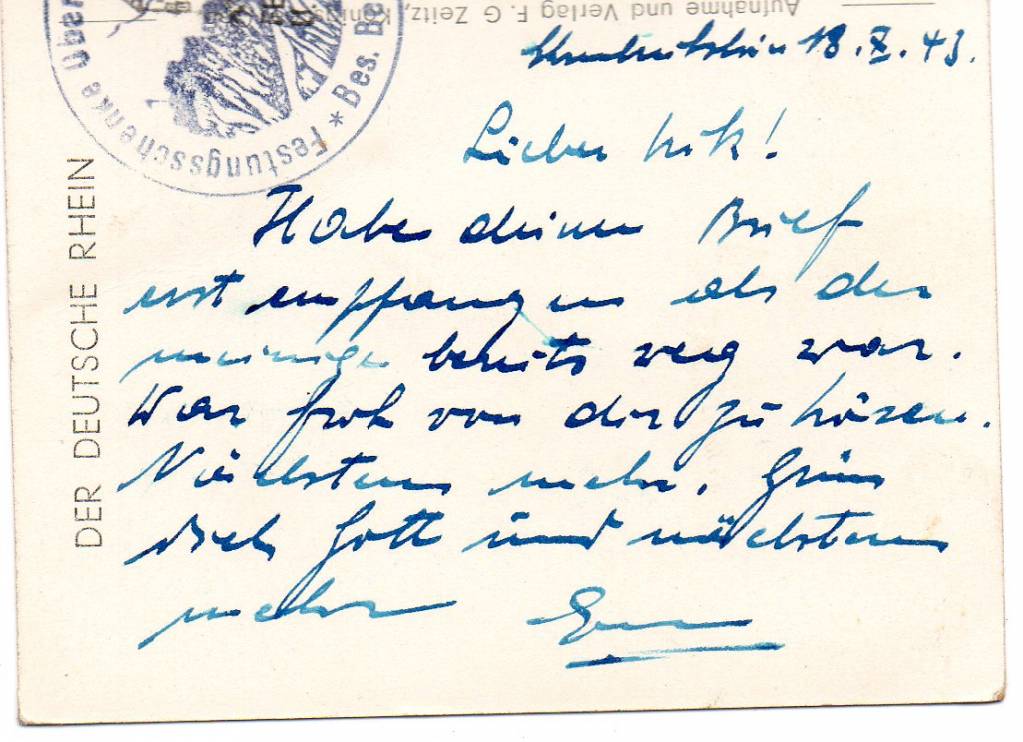 Aufnahme und Verlag F. G. Zeitz, König
Festungsschenke * Bes. Be
DER DEUTSCHE RHEIN
18.X.43.
Lieber Nik!
Habe deinen Brief
erst empfangen als der
meinige bereits weg war.
War froh von dir zu hören.
Nächstens mehr. Grüss
dich Gott und nächstens
mehr